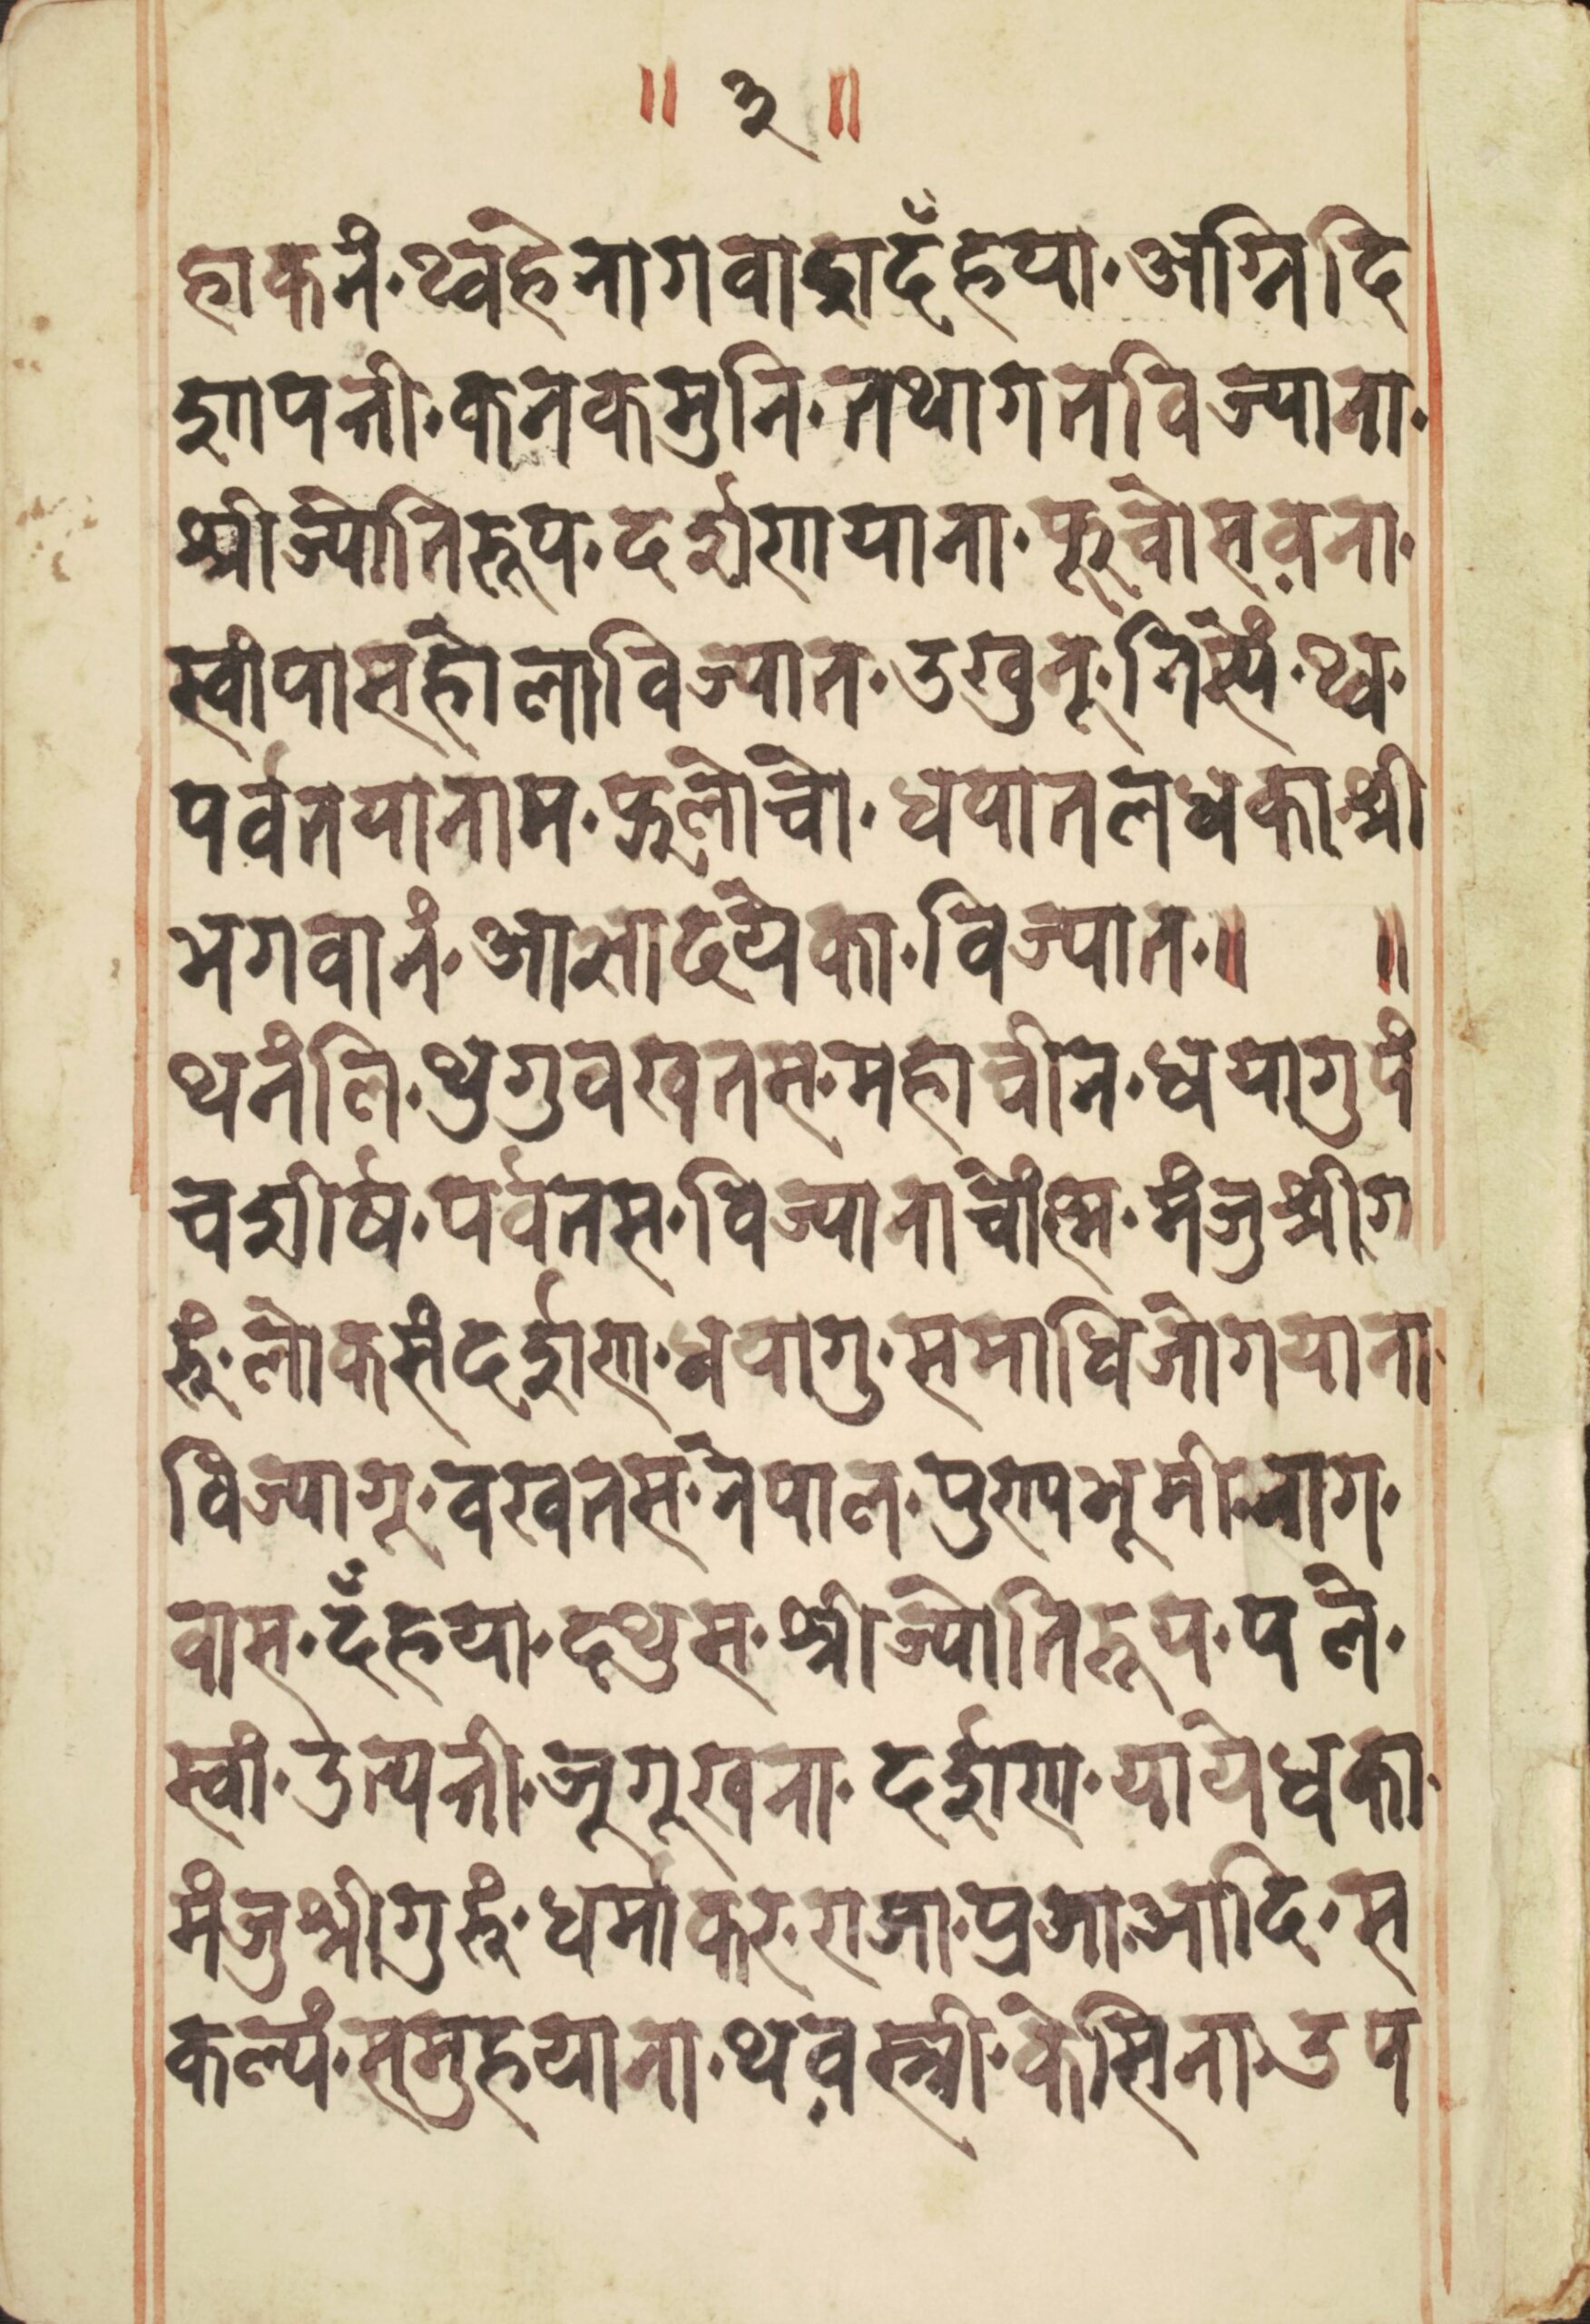 ॥ ३ ॥
हाकनं·थ्वहे नागवाद्रादँहया·अग्निदि
शापत्ती·कनकमुनि·तथागतविज्याना·
श्रीज्योतिरूप·दर्शणयाना·फूचोसव़ना·
स्वांपासहोलाविज्यात·उखुनू·निस्यें·थ्व·
पर्वतयानाम·फूलोचो·धयातलधका·श्री
भगवानं·आज्ञादयेका·विज्यात·॥ ॥
थनंलि·थुगुवखतस·महाचीन·धयागुपं
चशीर्ष·पर्वतस·विज्यानाचोंह्म·मंजुश्रीगु
रूं·लोकसंदर्शण·धयागु·समाधिजोगयाना
विज्यागू·वखतस·नेपाल·पुण्यभूमी·नाग·
वास·दँहया·दथुस·श्रीज्योतिरूप·पले·
स्वां·उत्पत्ती·जूगूखना·दर्शण·यायेधका·
मंजुश्रीगुरूं·धर्माकर·राजा·प्रजा·आदि·स
कल्यं·समुहयाना·थव़स्त्री·केसिना·उप